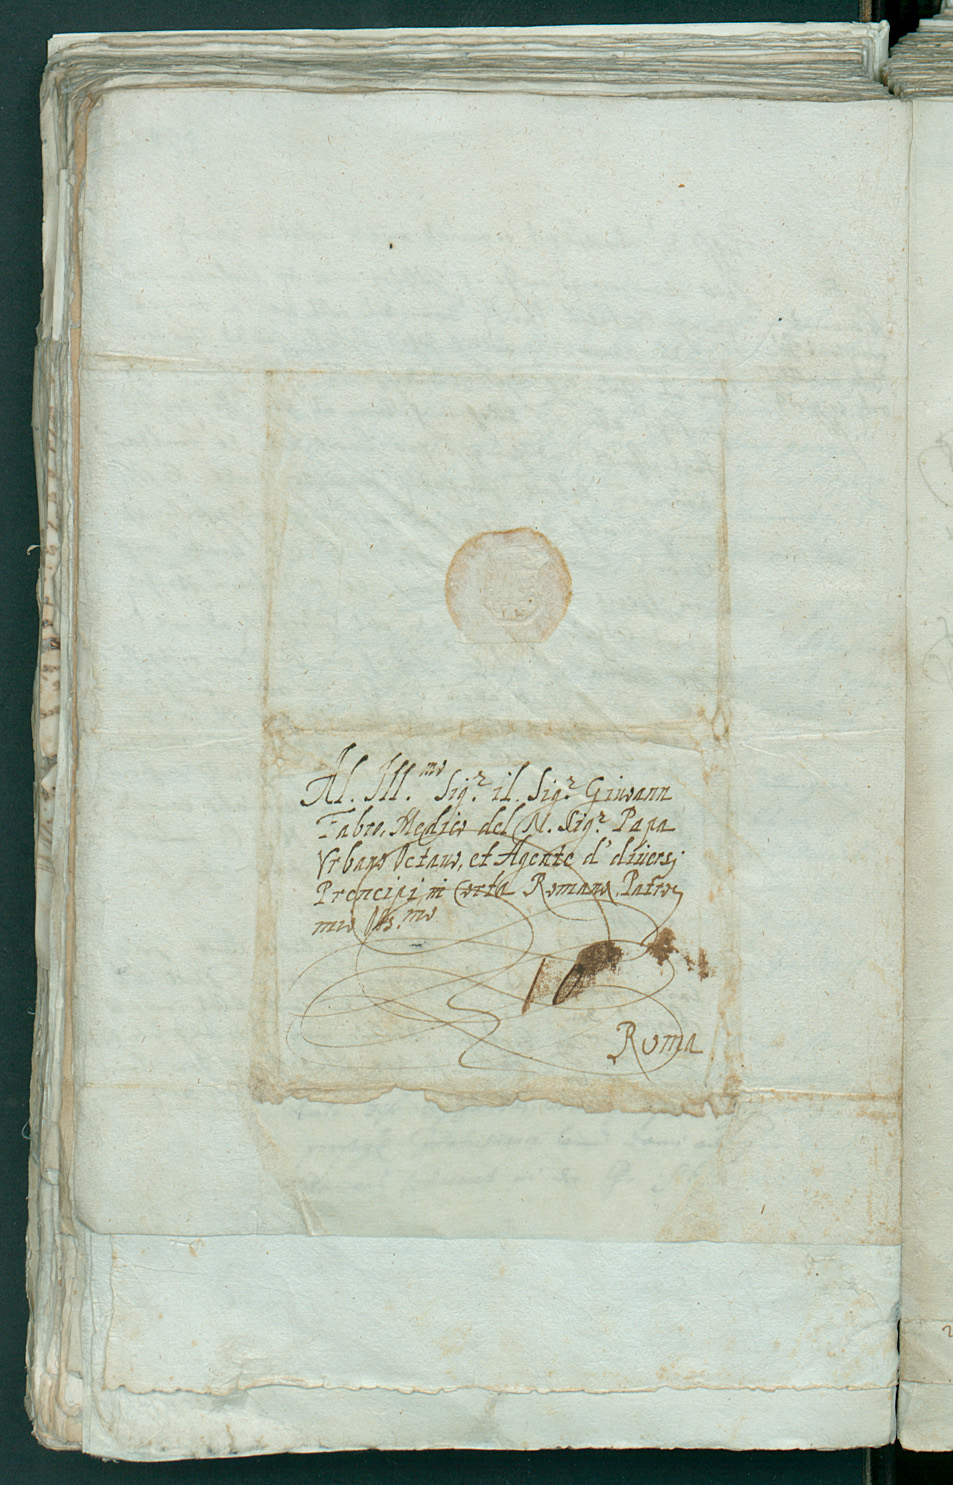 Al. Ill.mo Sig.r il. Sig.r Giuvann
Fabro, Medico del N. Sig.r Papa
Vrbano Octauo, et Agente d' diuersi
Prencipi, in Corta Romana, Patron
mio Oss.mo
10
Roma